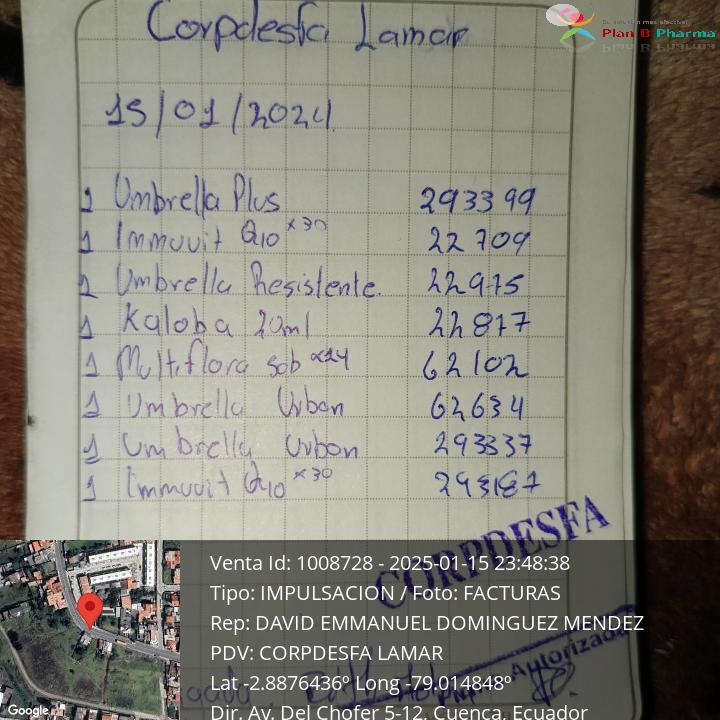 Tu solución más efectiva!
Plan B Pharma
Corpdesfa Lamar
15/01/2024
1 Umbrella Plus 293399
1 Immuvit Q10 x30 22709
1 Umbrella Resistente. 22975
1 Kaloba 20ml 22877
1 Multiflora sob x14 62102
1 Umbrella Urban 62634
1 Umbrella Urban 293337
1 Immuvit Q10 x30 293187
CORPDESFA
Autorizada
Venta Id: 1008728 - 2025-01-15 23:48:38
Tipo: IMPULSACION / Foto: FACTURAS
Rep: DAVID EMMANUEL DOMINGUEZ MENDEZ
PDV: CORPDESFA LAMAR
Lat -2.8876436º Long -79.014848º
Dir. Av. Del Chofer 5-12, Cuenca, Ecuador
Google